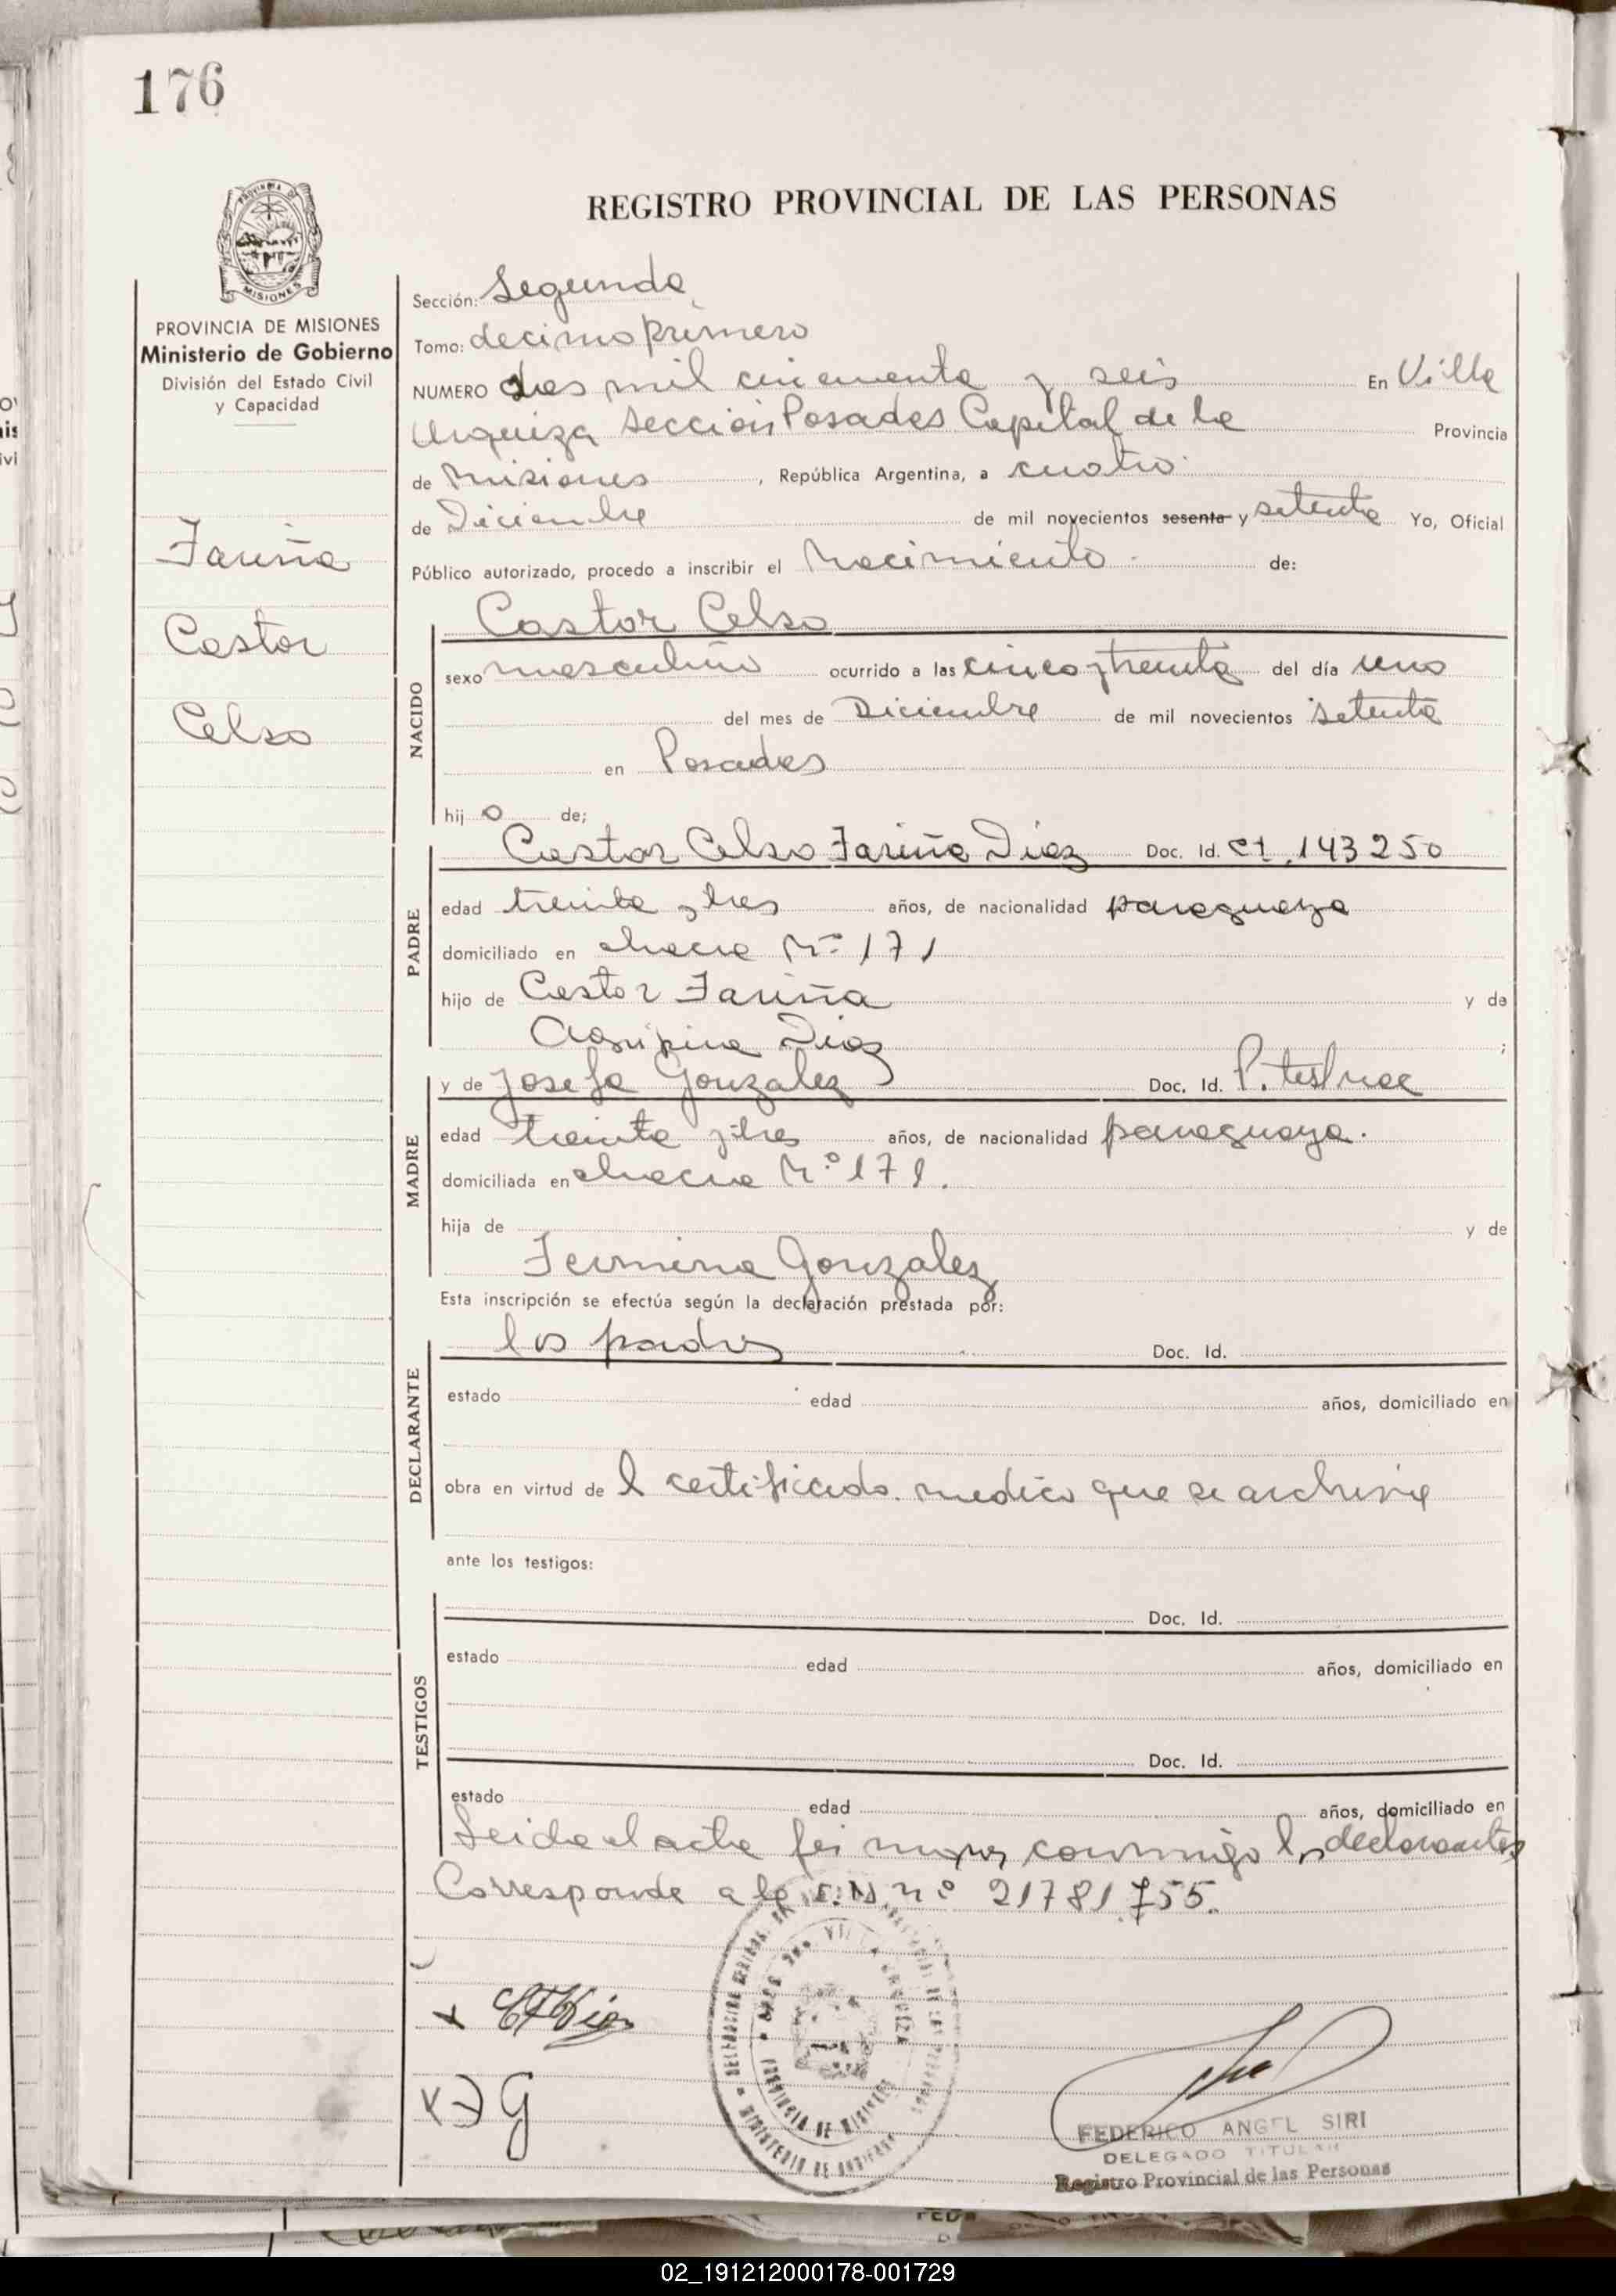 176
REGISTRO PROVINCIAL DE LAS PERSONAS
PROVINCIA DE MISIONES
Ministerio de Gobierno
División del Estado Civil
y Capacidad
Fariña
Castor
Celso
Sección: Segunda
Tomo: decimo primero
NUMERO dos mil cincuenta y seis En Villa
Urquiza Sección Posadas Capital de la Provincia
de Misiones, República Argentina, a cuatro
de Diciembre de mil novecientos sesenta y setenta Yo, Oficial
Público autorizado, procedo a inscribir el Nacimiento de:
NACIDO
Castor Celso
sexo masculino ocurrido a las cinco y treinta del día uno
del mes de Diciembre de mil novecientos setenta
en Posadas
hijo de;
PADRE
Castor Celso Fariña Diaz Doc. Id. CI. 143250
edad treinta y tres años, de nacionalidad paraguaya
domiciliado en chacra Nº 171
hijo de Castor Fariña y de
Agripina Diaz ;
MADRE
y de Josefa Gonzalez Doc. Id.
edad treinta y tres años, de nacionalidad paraguaya.
domiciliada en chacra Nº 171.
hija de y de
Fermina Gonzalez
Esta inscripción se efectúa según la declaración prestada por:
DECLARANTE
los padres Doc. Id.
estado edad años, domiciliado en
obra en virtud de l certificado medico que se archiva
ante los testigos:
TESTIGOS
Doc. Id.
estado edad años, domiciliado en
Doc. Id.
estado edad años, domiciliado en
Leida el acta conmigo los declarantes
Corresponde a la nº 21781.755.
PROVINCIA DE MISIONES
MINISTERIO DE GOBIERNO
x J G
FEDERICO ANGEL SIRI
DELEGADO TITULAR
Registro Provincial de las Personas
02_191212000178-001729